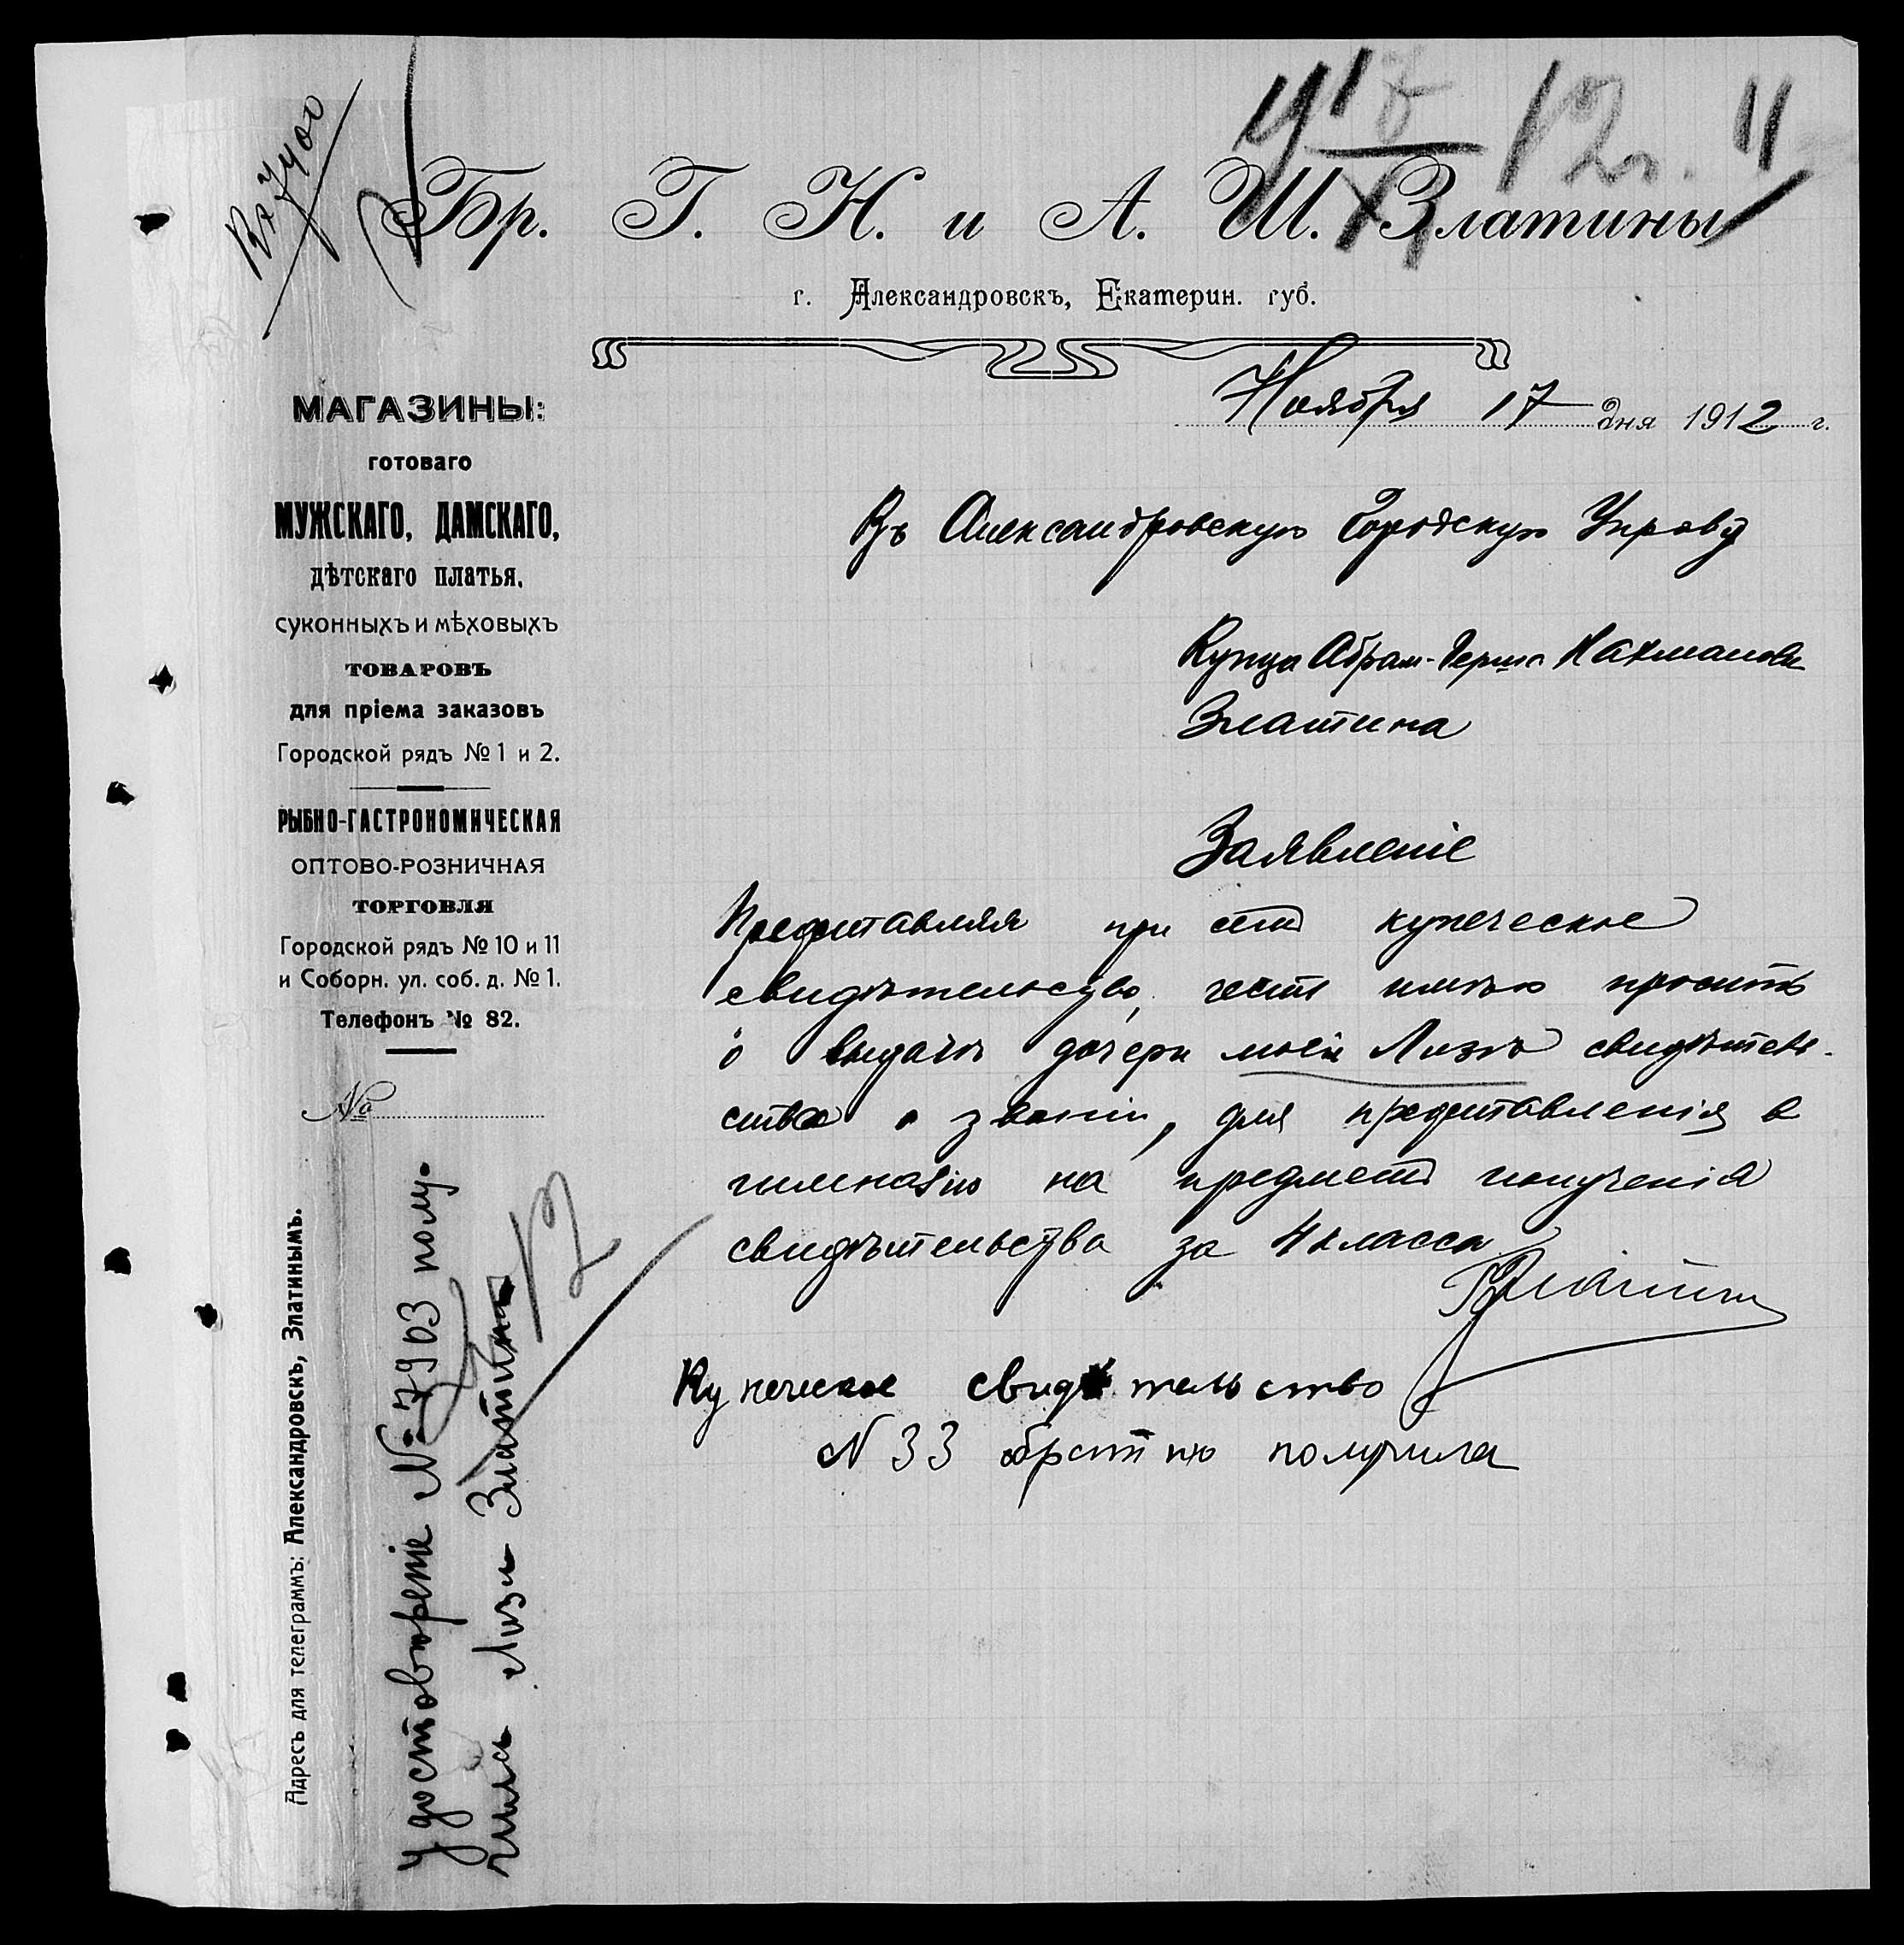 Вх 7400
17 12 г. 11
Бр. Г. Н. и А. Ш. Златины
г. Александровскъ, Екатерин. губ.
Ноября 17 дня 1912 г.
МАГАЗИНЫ:
готоваго
МУЖСКАГО, ДАМСКАГО,
дѣтскаго платья,
суконныхъ и мѣховыхъ
товаровъ
для пріема заказовъ
Городской рядъ № 1 и 2.
РЫБНО-ГАСТРОНОМИЧЕСКАЯ
ОПТОВО-РОЗНИЧНАЯ
ТОРГОВЛЯ
Городской рядъ № 10 и 11
и Соборн. ул. соб. д. № 1.
Телефонъ № 82.
№
Адресъ для телеграммъ: Александровскъ, Златинымъ.
Въ Александровскую Городскую Управу
Купца Абрам-Герша Нахманов
Златина
Заявленіе
Представляя при семъ купеческое
свидѣтельство, честь имѣю просить
о выдачѣ дочери моей Лизѣ свидѣтель-
ства о званіи, для представленія в
гимназію на предметъ полученія
свидѣтельства за 4 класса
Златин
Купеческое свидѣтельство
N 33 обратно получила
Удостовѣреніе № 7903 полу-
чила Лиза Златина